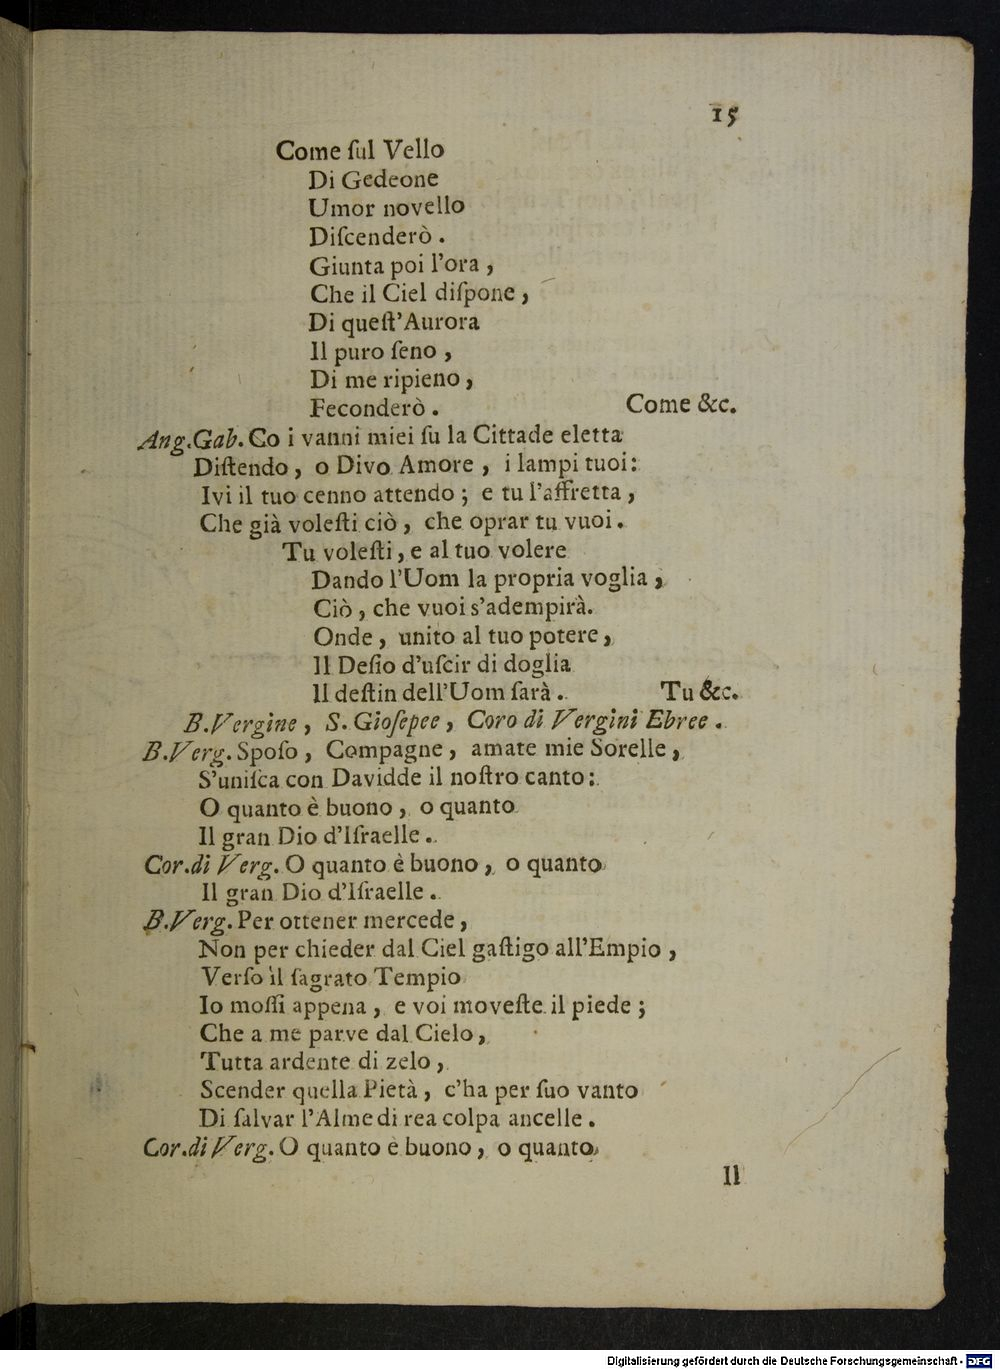 15
Come ſul Vello
Di Gedeone
Umor novello
Diſcenderò.
Giunta poi l'ora,
Che il Ciel diſpone,
Di queſt'Aurora
Il puro ſeno,
Di me ripieno,
Feconderò. Come &c.
Ang.Gab. Co i vanni miei ſu la Cittade eletta
Diſtendo, o Divo Amore, i lampi tuoi:
Ivi il tuo cenno attendo; e tu l'affretta,
Che già voleſti ciò, che oprar tu vuoi.
Tu voleſti, e al tuo volere
Dando l'Uom la propria voglia,
Ciò, che vuoi s'adempirà.
Onde, unito al tuo potere,
Il Deſio d'uſcir di doglia
Il deſtin dell'Uom ſarà. Tu &c.
B.Vergine, S. Gioſepee, Coro di Vergini Ebree.
B.Verg. Spoſo, Compagne, amate mie Sorelle,
S'uniſca con Davidde il noſtro canto:
O quanto è buono, o quanto
Il gran Dio d'Iſraelle.
Cor.di Verg. O quanto è buono, o quanto
Il gran Dio d'Iſraelle.
B.Verg. Per ottener mercede,
Non per chieder dal Ciel gaſtigo all'Empio,
Verſo il ſagrato Tempio
Io moſſi appena, e voi moveſte il piede;
Che a me parve dal Cielo,
Tutta ardente di zelo,
Scender quella Pietà, c'ha per ſuo vanto
Di ſalvar l'Alme di rea colpa ancelle.
Cor.di Verg. O quanto è buono, o quanto
Il
Digitalisierung gefördert durch die Deutsche Forschungsgemeinschaft - DFG